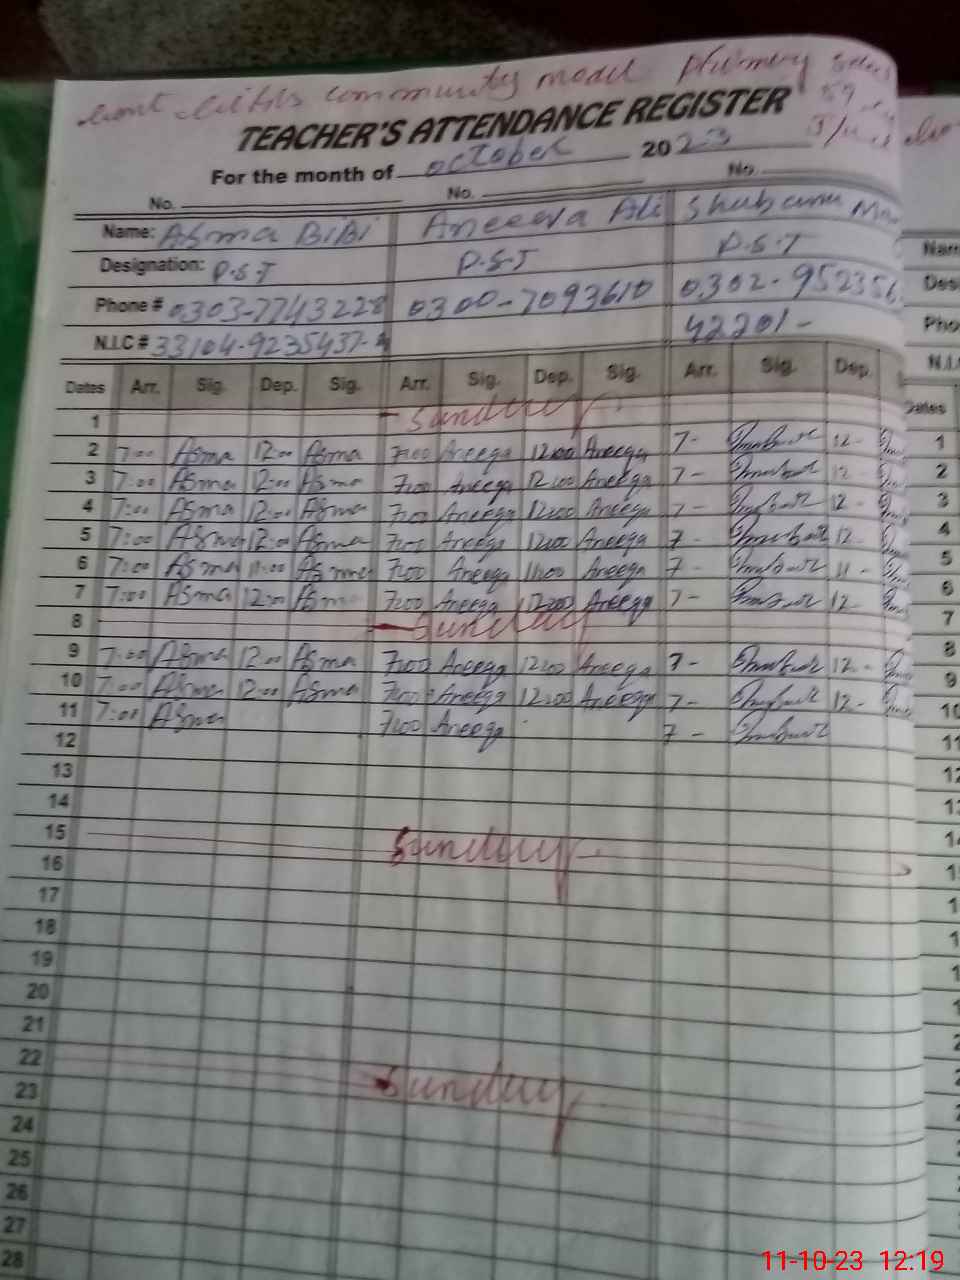 community model primary
TEACHER'S ATTENDANCE REGISTER
For the month of october 2023
No. No. No.
Name: Asma BiBi Aneeqa Ali Shub
Designation: P.S.T P.S.T P.S.T
Phone # 0303-7743228 0300-7093610 0302-952356
N.I.C # 33104-9235437- 42201-
Dates Arr. Sig. Dep. Sig. Arr. Sig. Dep. Sig. Arr. Sig. Dep.
1 Sunday
2 7:00 Asma 12:00 Asma 7:00 Aneeqa 12:00 Aneeqa 7- 12-
3 7:00 Asma 12:00 Asma 7:00 Aneeqa 12:00 Aneeqa 7- 12-
4 7:00 Asma 12:00 Asma 7:00 Aneeqa 12:00 Aneeqa 7- 12-
5 7:00 Asma 12:00 Asma 7:00 Aneeqa 12:00 Aneeqa 7- 12-
6 7:00 Asma 11:00 Asma 7:00 Aneeqa 11:00 Aneeqa 7- 11-
7 7:00 Asma 12:00 Asma 7:00 Aneeqa 12:00 Aneeqa 7- 12-
8 Sunday
9 7:00 Asma 12:00 Asma 7:00 Aneeqa 12:00 Aneeqa 7- 12-
10 7:00 Asma 12:00 Asma 7:00 Aneeqa 12:00 Aneeqa 7- 12-
11 7:00 Asma 7:00 Aneeqa 7-
12
13
14
15 Sunday
16
17
18
19
20
21
22 Sunday
23
24
25
26
27
28
Dates
1
2
3
4
5
6
7
8
9
10
11
11-10-23 12:19